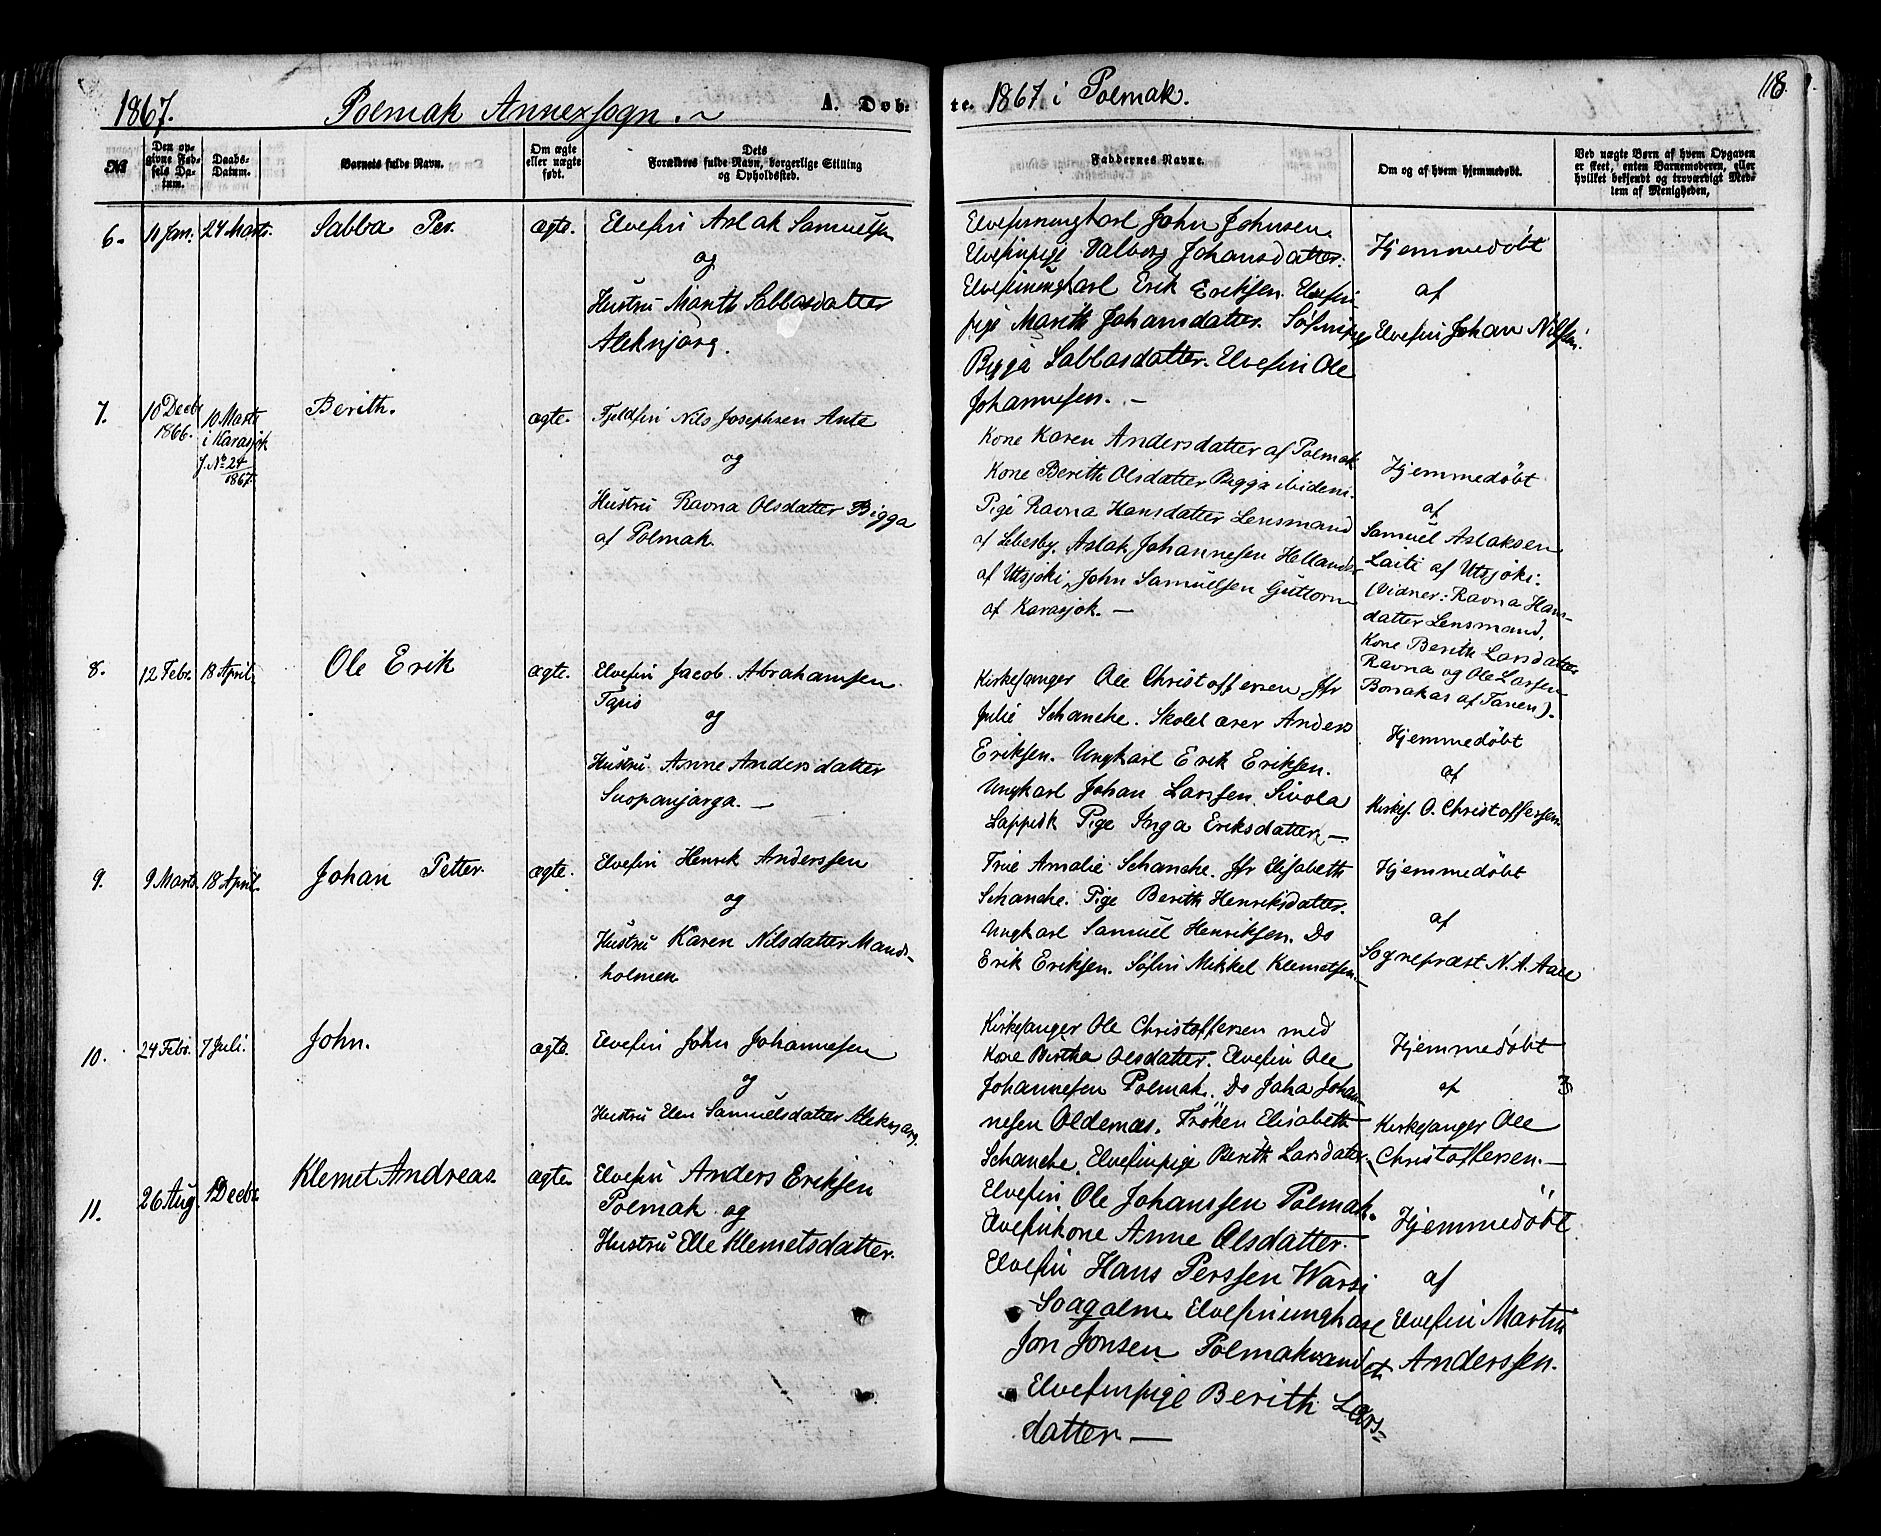 1867. Polmak Annexsogn. A. Døb-
te. 1867 i Polmak. 118.
No
Den op-
givne Fød-
sels Da-
tum.
Daabs-
Datum.
Barnets fulde Navn.
Om ægte
eller uægte
født.
Dets
Forældres fulde Navn, borgerlige Stilling
og Opholdssted.
Faddernes Navne.
Om og af hvem hjemmedøbt.
Ved uægte Børn af hvem Opgaven
er skeet, enten Barnemoderen, eller
hvilket bekjendt og troværdigt Med-
lem af Menigheden,
6. 11 Jan. 24 Marts. Sabba Per. ægte.
Elvefin Aslak Samuelsen
og
Hustru Marith Sabbasdatter
Aleknjarg.
Elvefinungkarl John Johnsen.
Elvefinpige Valborg Johansdatter.
Elvefinungkarl Erik Eriksen. Elvefin-
pige Marith Johansdatter. Søfinpige
Bigga Sabbasdatter. Elvefin Ole
Johannesen. —
Hjemmedøbt
af
Elvefin Johan Nilssen.
7. 10 Decbr
1866.
10 Marts
i Karasjok
f. No 24
1867.
Berith. ægte.
Fjeldfin Nils Josephsen Ante
og
Hustru Ravna Olsdatter Bigga
af Polmak.
Kone Karen Andersdatter af Polmak
Kone Berith Olsdatter Bigga ibidem.
Pige Ravna Hansdatter Lensmand
af Lebesby. Aslak Johannesen Hellander
af Utsjoki, John Samuelsen Guttorm
af Karasjok. —
Hjemmedøbt
af
Samuel Aslaksen
Laiti af Utsjoki.
(Vidner: Ravna Hans-
datter Lensmand,
Kone Berith Larsdatter
Ravna og Ole Larsen
Borrakas af Tanen).
8. 12 Febr. 18 April. Ole Erik ægte.
Elvefin Jacob Abrahamsen
Tapio
og
Hustru Anne Andersdatter
Suopanjarga. —
Kirkesanger Ole Christoffersen, Jfr
Julie Schanche. Skolelærer Anders
Eriksen. Ungkarl Erik Eriksen.
Ungkarl Johan Larssen Sivola
Lappisk Pige Inga Eriksdatter —
Hjemmedøbt
af
Kirkes. O. Christoffersen
9. 9 Marts. 18 April. Johan Petter. ægte.
Elvefin Henrik Anderssen
og
Hustru Karen Nilsdatter Mands-
holmen
Frue Amalie Schanche. Jfr Elisabeth
Schanche. Pige Berith Henriksdatter.
Ungkarl Samuel Henriksen. Do
Erik Eriksen. Søfin Mikkel Klemetsen.
Hjemmedøbt
af
Sognepræst N. A. Aall
10. 24 Febr. 7 Juli. John. ægte.
Elvefin John Johannesen
og
Hustru Elen Samuelsdatter Aleknjarg.
Kirkesanger Ole Christoffersen med
Kone Birtha Olsdatter. Elvefin Ole
Johannesen Polmak. Do Jaha Johan-
nesen Oldernæs. Frøken Elisabeth
Schanche. Elvefinpige Berith Larsdatter.
Hjemmedøbt
af
Kirkesanger Ole
Christoffersen. —
11. 26 Aug. 1 Decbr. Klemet Andreas. ægte.
Elvefin Anders Eriksen
Polmak og
Hustru Elle Klemetsdatter.
Elvefin Ole Johanssen Polmak.
Elvefinkone Anne Olsdatter.
Elvefin Hans Perssen Warsi
Soagolm. Elvefinungkarl
Jon Jonsen Polmakvandet.
Elvefinpige Berith Lars-
datter —
Hjemmedøbt
af
Elvefin Martin
Anderssen.